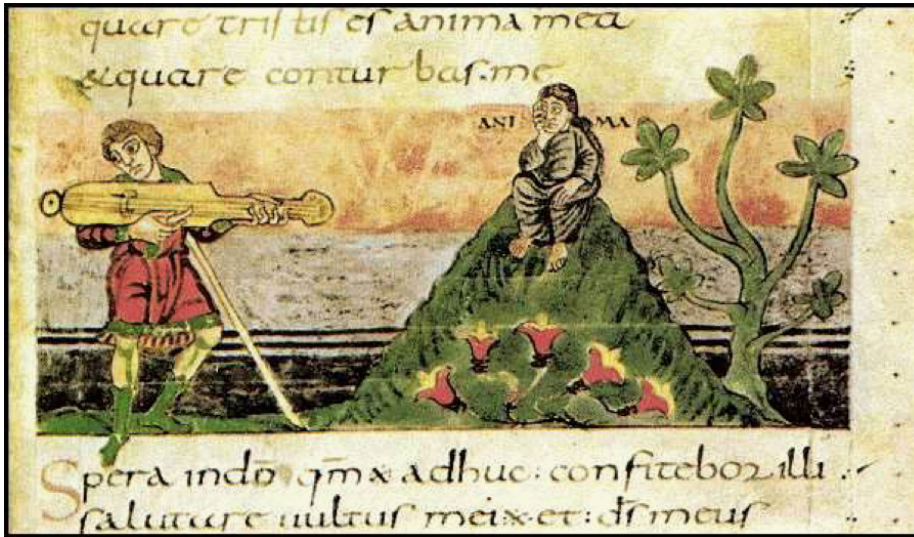 quare tristis es anima mea
& quare conturbas me
ANI MA
Spera in dō qm̄ adhuc confitebor illi
salutare uultus mei et ds̄ meus